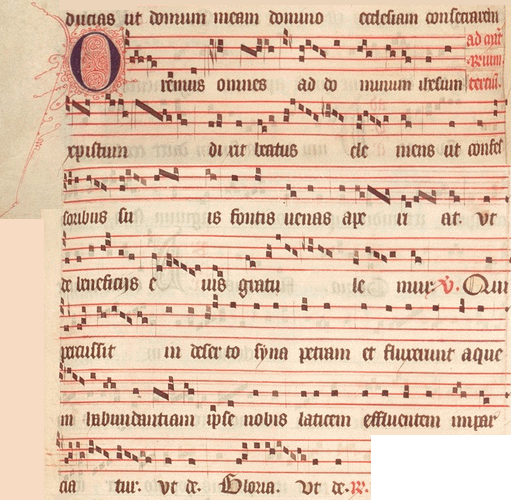 ducias ut domum meam domino ecclesiam consecrarem
Oremus omnes ad do minum ihesum
xpistum di xit beatus cle mens ut confes
soribus su is fontis uenas ape ri at. Vt
de beneficijs e ius gratu le mur. V. Qui
percussit in deser to syna petram et fluxerunt aque
in habundantiam ipse nobis laticem effluentem impar
cia tur. Vt de. Gloria. Vt de. R.